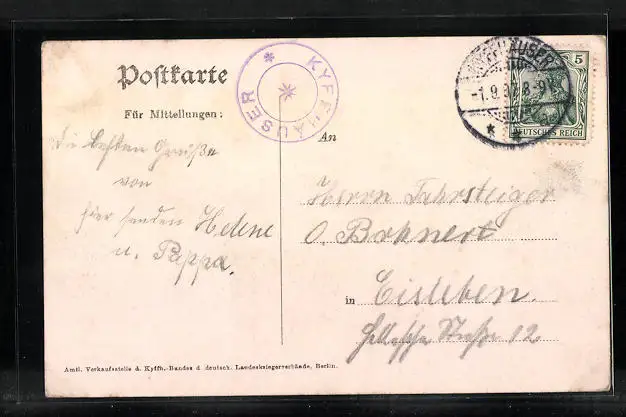 Postkarte
Für Mitteilungen:
Die besten Grüße
von
hier senden Helene
u. Pappa.
Amtl. Verkaufsstelle d. Kyffh.-Bundes d. deutsch. Landeskriegerverbände, Berlin.
KYFFHÄUSER
KYFFHÄUSER
-1.9.07. 8-9
5
DEUTSCHES REICH
An
Herrn Fahrsteiger
O. Bohnert
in Eisleben.
Straße 12